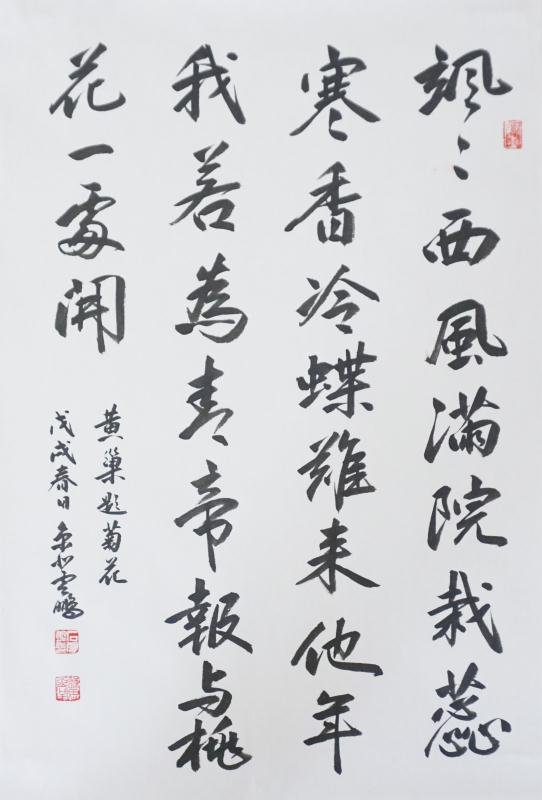 颯〻西風滿院栽蕊
寒香冷蝶難来他年
我若為青帝報与桃
花一處開
黄巢題菊花
戊戌春日 雲鵬